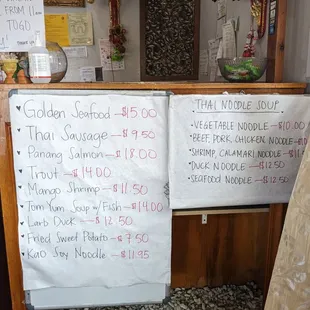 FROM 11am
TOGO
Golden Seafood — $15.00
Thai Sausage — $9.50
Panang Salmon — $18.00
Trout — $14.00
Mango Shrimp — $11.50
Tom Yum Soup w/ Fish — $14.00
Larb Duck — $12.50
Fried Sweet Potato — $7.50
Kao Soy Noodle — $11.95
THAI NOODLE SOUP
• VEGETABLE NOODLE — $10.00
• BEEF, PORK, CHICKEN NOODLE
• SHRIMP, CALAMARI NOODLE — $11
• DUCK NOODLE — $12.50
• SEAFOOD NOODLE — $12.50